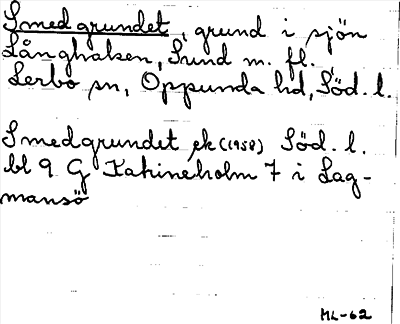 Smedgrundet, grund i sjön
Långhalsen, Sund m. fl.,
Lerbo sn, Oppunda hd, Söd. l.
Smedgrundet ek (1958) Söd. l.
bl 9 G Katrineholm 7 i Lag-
mansö
ML-62